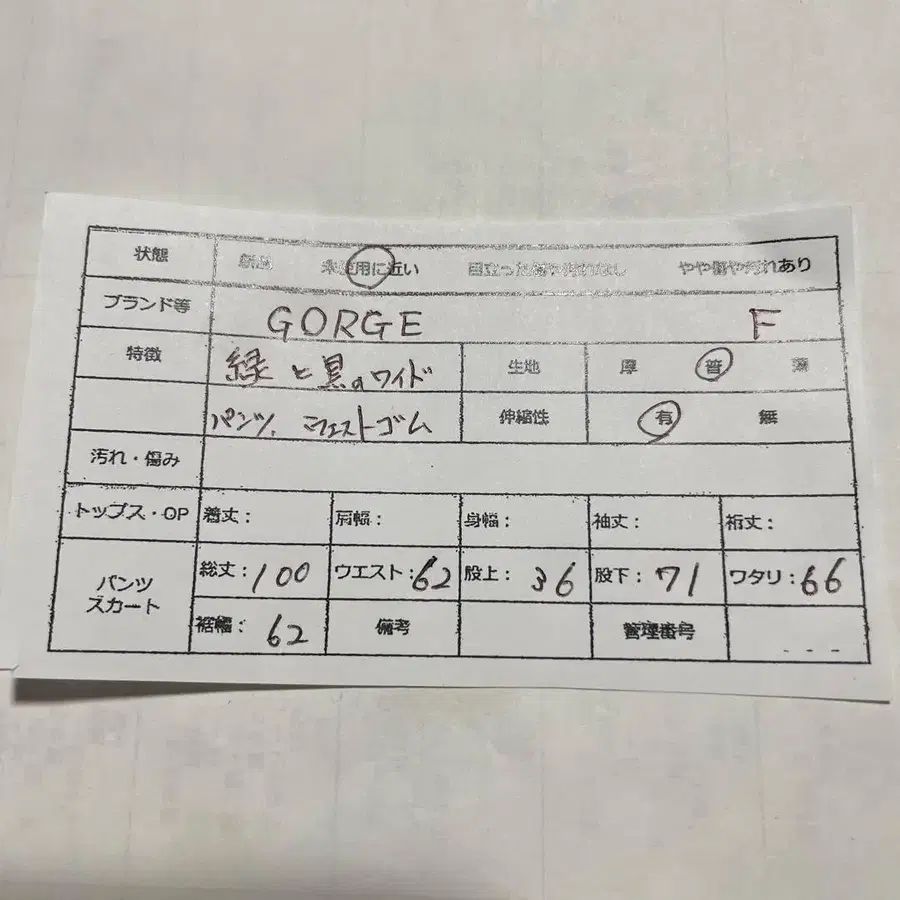 状態 新品 未使用に近い 目立った傷や汚れなし やや傷や汚れあり
ブランド等 GORGE F
特徴 緑と黒のワイド 生地 厚 普 薄
パンツ、ウエストゴム 伸縮性 有 無
汚れ・傷み
トップス・OP 着丈: 肩幅: 身幅: 袖丈: 裄丈:
パンツ スカート 総丈:100 ウエスト:62 股上:36 股下:71 ワタリ:66
裾幅:62 備考 管理番号 ---